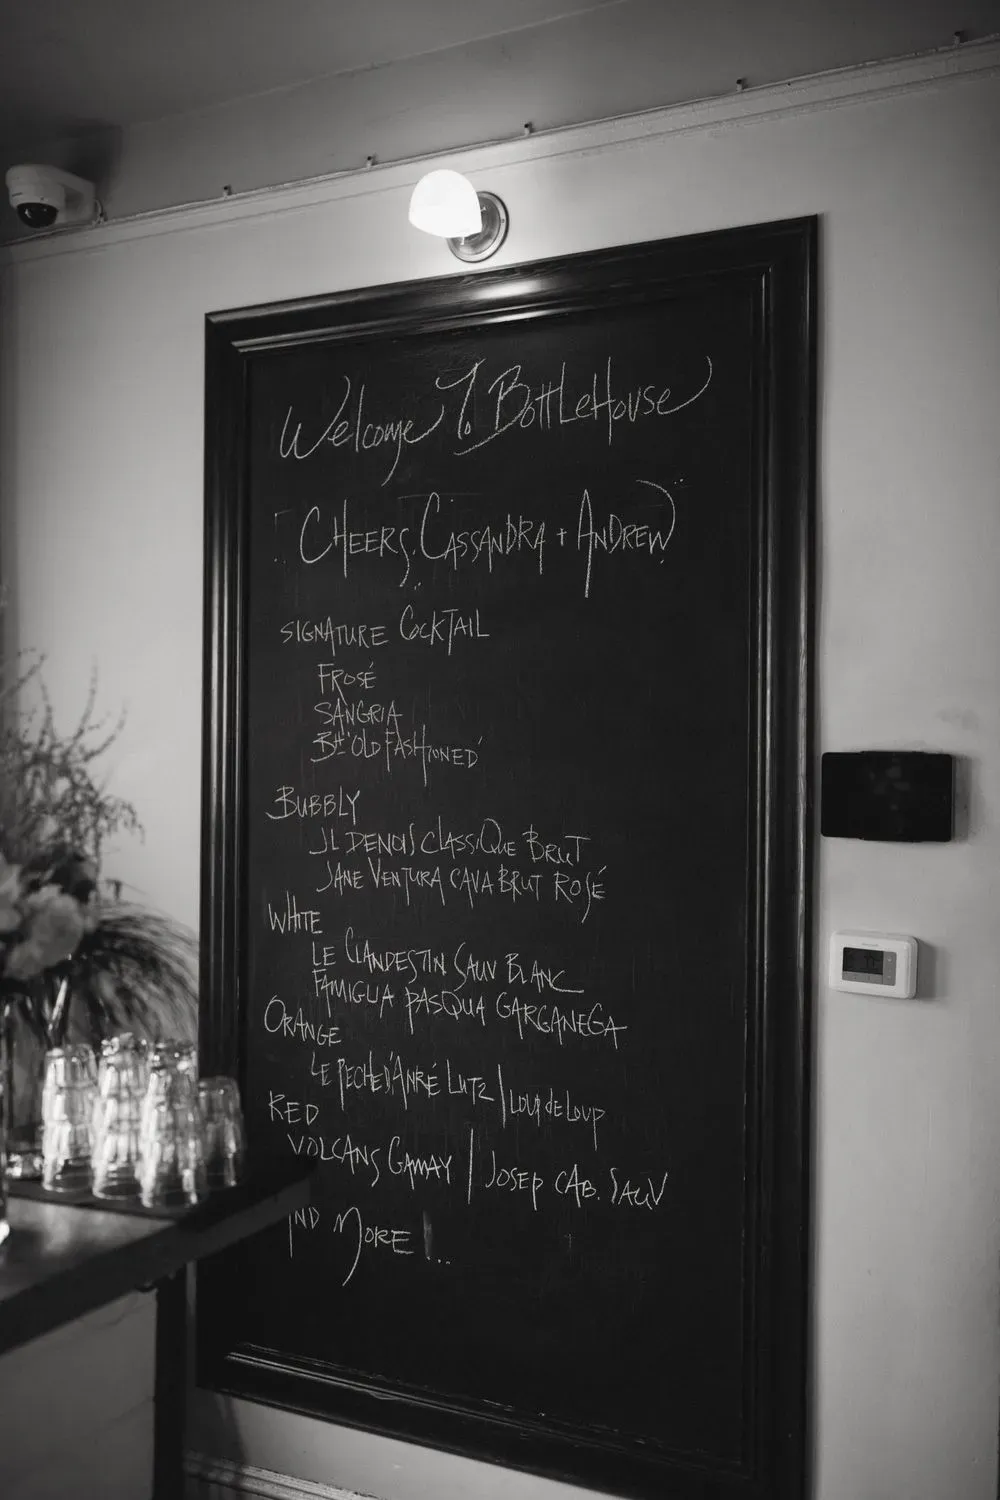 Welcome To BottleHouse
CHEERS, CASSANDRA + ANDREW
SIGNATURE COCKTAIL
FROSÉ
SANGRIA
BH 'OLD FASHIONED'
BUBBLY
JL DENOIS CLASSIQUE BRUT
JANE VENTURA CAVA BRUT ROSÉ
WHITE
LE CLANDESTIN SAUV BLANC
FAMIGLIA PASQUA GARGANEGA
ORANGE
LE PECHE D'ANRÉ LUTZ | LOUP de LOUP
RED
VOLCANS GAMAY | JOSEP CAB. SAUV
AND MORE...